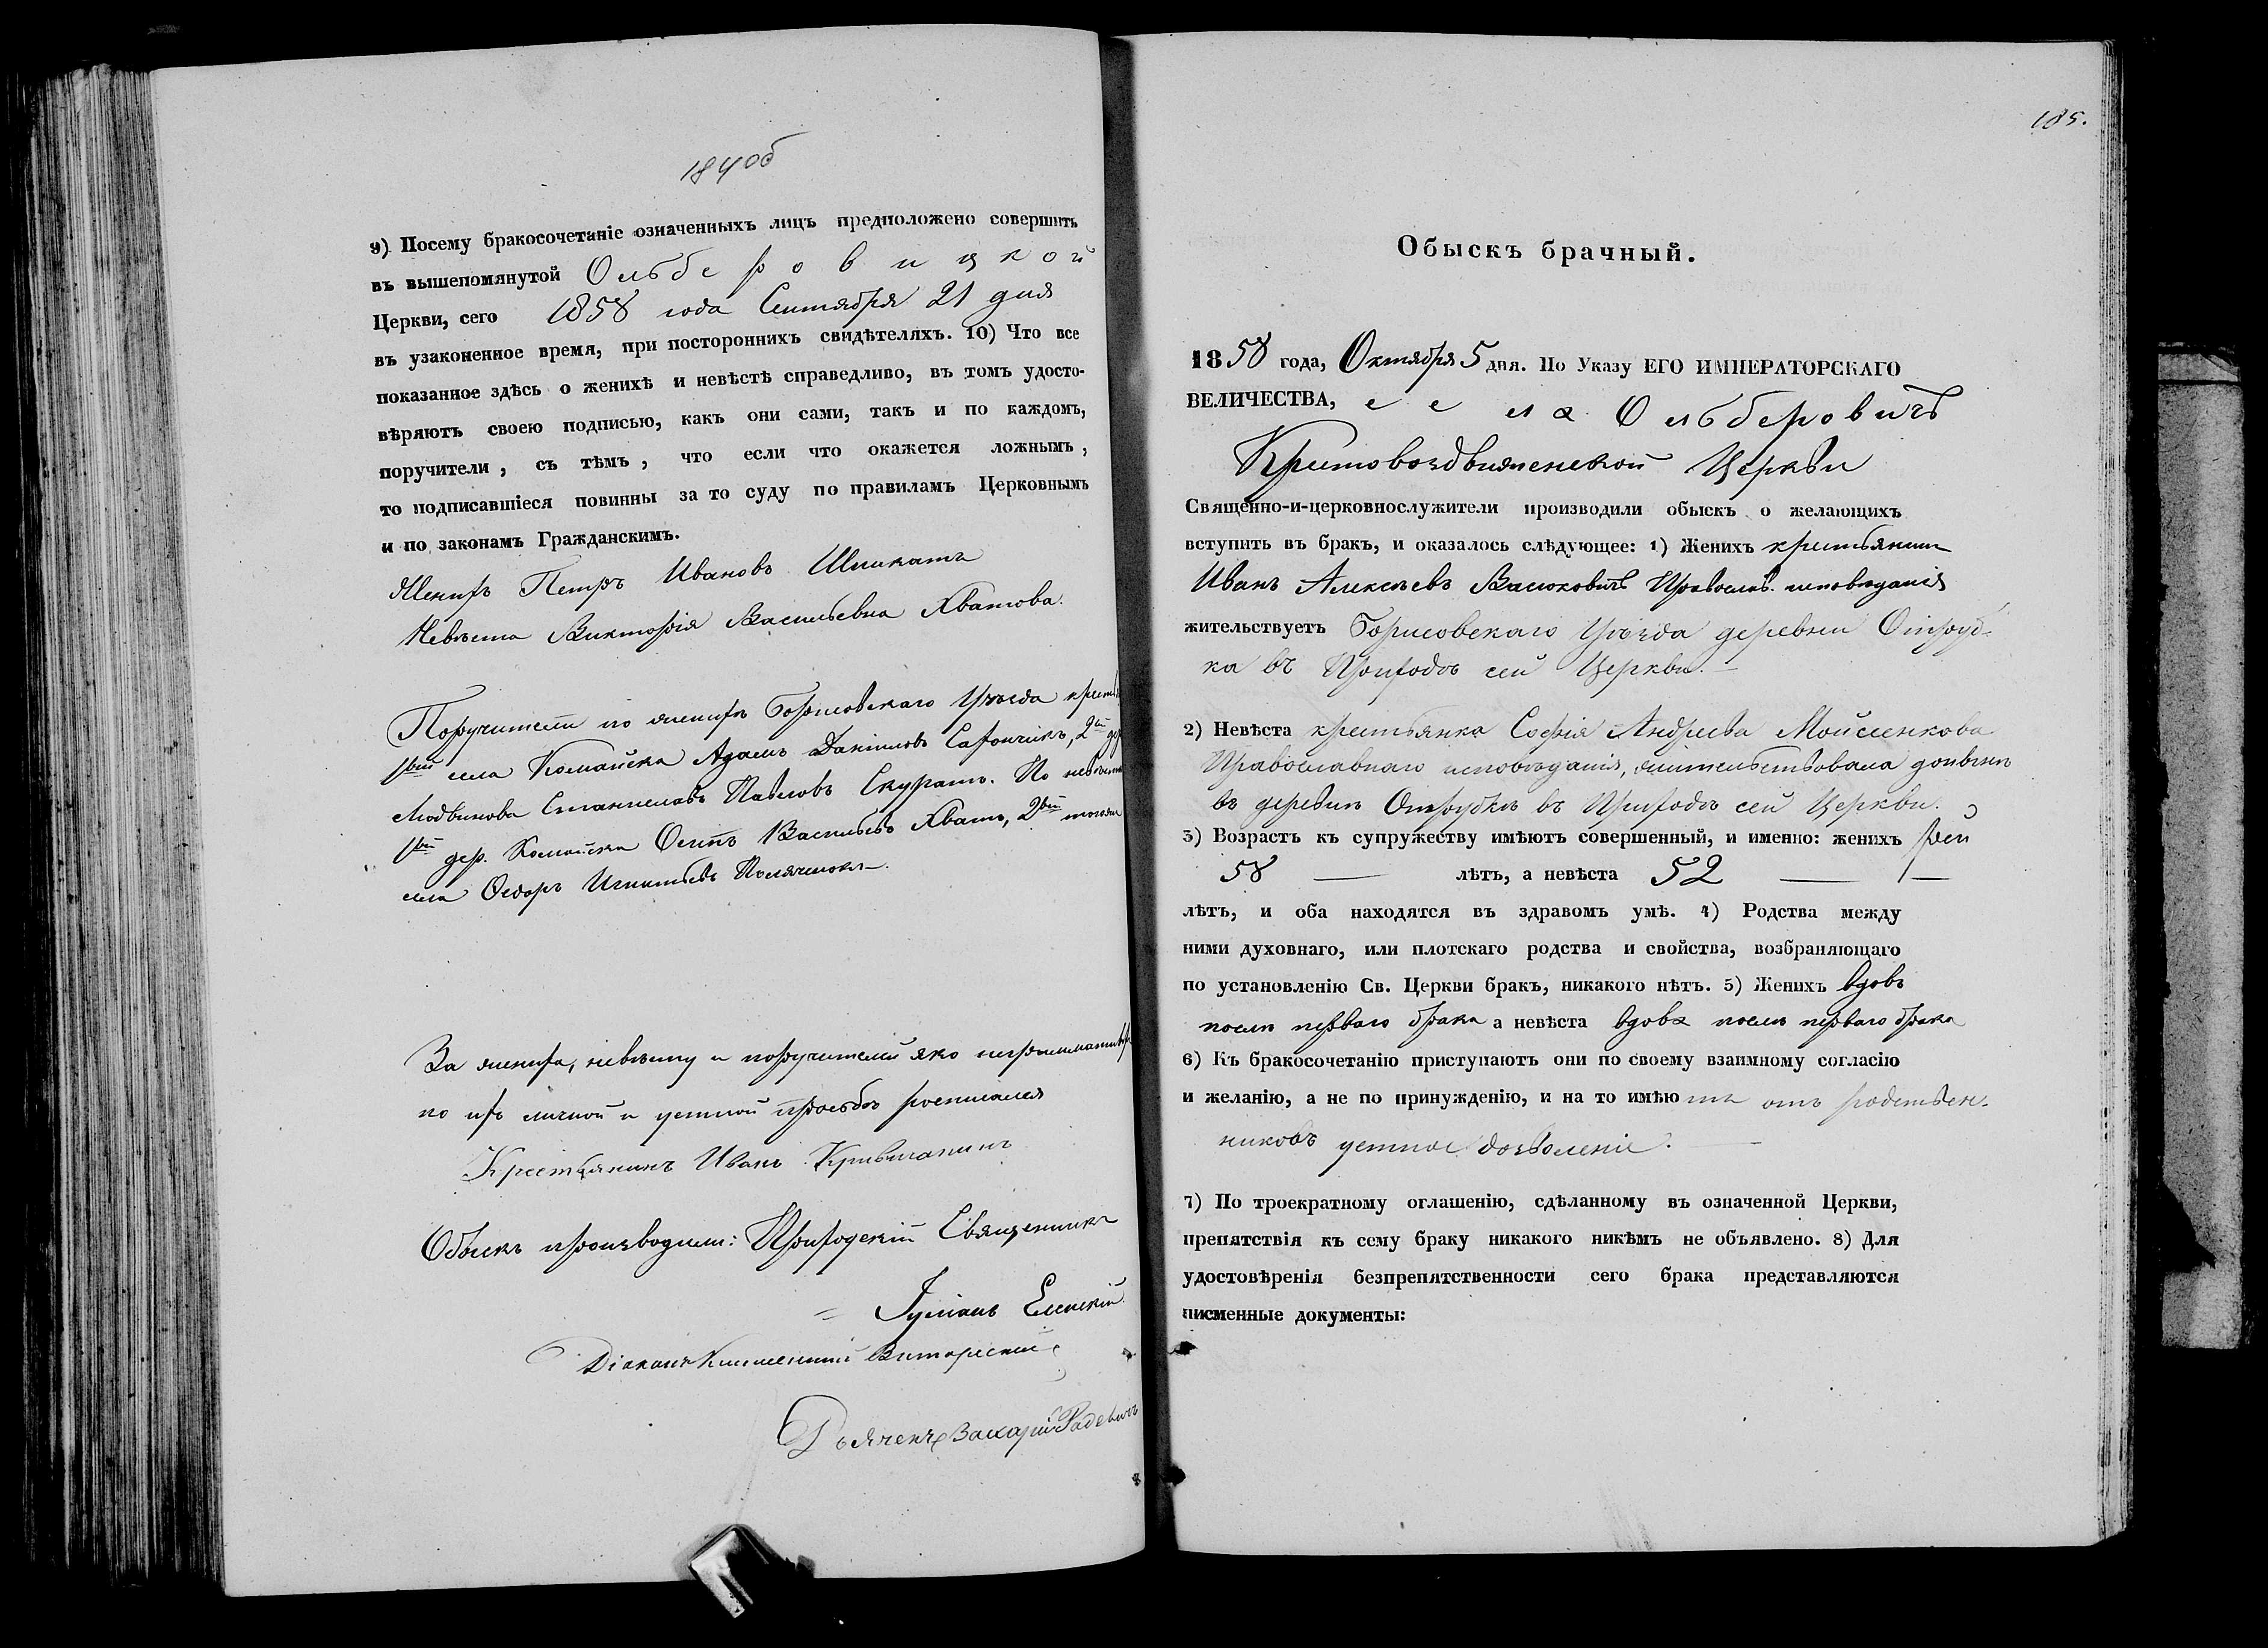 184об
9) Посему бракосочетаніе означенныхъ лицъ предположено совершить
въ вышепомянутой Ольберовицкой
Церкви, сего 1858 года Сентября 21 дня
въ узаконенное время, при постороннихъ свидѣтеляхъ. 10) Что все
показанное здѣсь о женихѣ и невѣстѣ справедливо, въ томъ удосто-
вѣряютъ своею подписью, какъ они сами, такъ и по каждомъ,
поручители, съ тѣмъ, что если что окажется ложнымъ,
то подписавшіеся повинны за то суду по правиламъ Церковнымъ
и по законамъ Гражданскимъ.
Женихъ Петръ Ивановъ
Невѣста Викторія Васильевна Хватова.
Поручители по женихѣ Борисовскаго Уѣзда
1вый села Комайска Адамъ Данииловъ Сафончикъ, 2й
Станиславъ Павловъ Скуратъ. По невѣстѣ
1вый дер. Комайска Осипъ Васильевъ Хватъ, 2вый
села Ѳедоръ Игнатьевъ
За жениха, невѣсту и поручителей яко неграмотныхъ
по ихъ личной и устной просьбѣ росписался
Крестьянинъ Иванъ Кривичанинъ
Обыскъ производили: Приходскій Священникъ
Іуліанъ
Діаконъ
Дьячекъ Захарій Радевичъ
185.
Обыскъ брачный.
1858 года, Октября 5 дня. По Указу ЕГО ИМПЕРАТОРСКАГО
ВЕЛИЧЕСТВА, села Ольберовичъ
Крестовоздвиженской Церкви
Священно-и-церковнослужители производили обыскъ о желающихъ
вступить въ бракъ, и оказалось слѣдующее: 1) Женихъ крестьянинъ
Иванъ Алексѣевъ Васюковичъ Православ. исповѣданія
жительствуетъ Борисовскаго Уѣзда деревни Отруб-
ка въ Приходѣ сей Церкви.
2) Невѣста крестьянка Софія Андреева Мойсеенкова
Православнаго исповѣданія, жительствовала донынѣ
въ деревнѣ Отрубкѣ въ Приходѣ сей Церкви.
3) Возрастъ къ супружеству имѣютъ совершенный, и именно: женихъ
58 — лѣтъ, а невѣста 52 —
лѣтъ, и оба находятся въ здравомъ умѣ. 4) Родства между
ними духовнаго, или плотскаго родства и свойства, возбраняющаго
по установленію Св. Церкви бракъ, никакого нѣтъ. 5) Женихъ вдовъ
послѣ перваго брака а невѣста вдова послѣ перваго брака
6) Къ бракосочетанію приступаютъ они по своему взаимному согласію
и желанію, а не по принужденію, и на то имѣютъ отъ родствен-
никовъ устное дозволеніе.
7) По троекратному оглашенію, сдѣланному въ означенной Церкви,
препятствія къ сему браку никакого никѣмъ не объявлено. 8) Для
удостовѣренія безпрепятственности сего брака представляются
писменные документы: